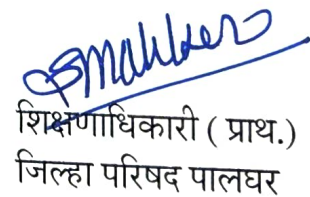 शिक्षणाधिकारी ( प्राथ.)
जिल्हा परिषद पालघर